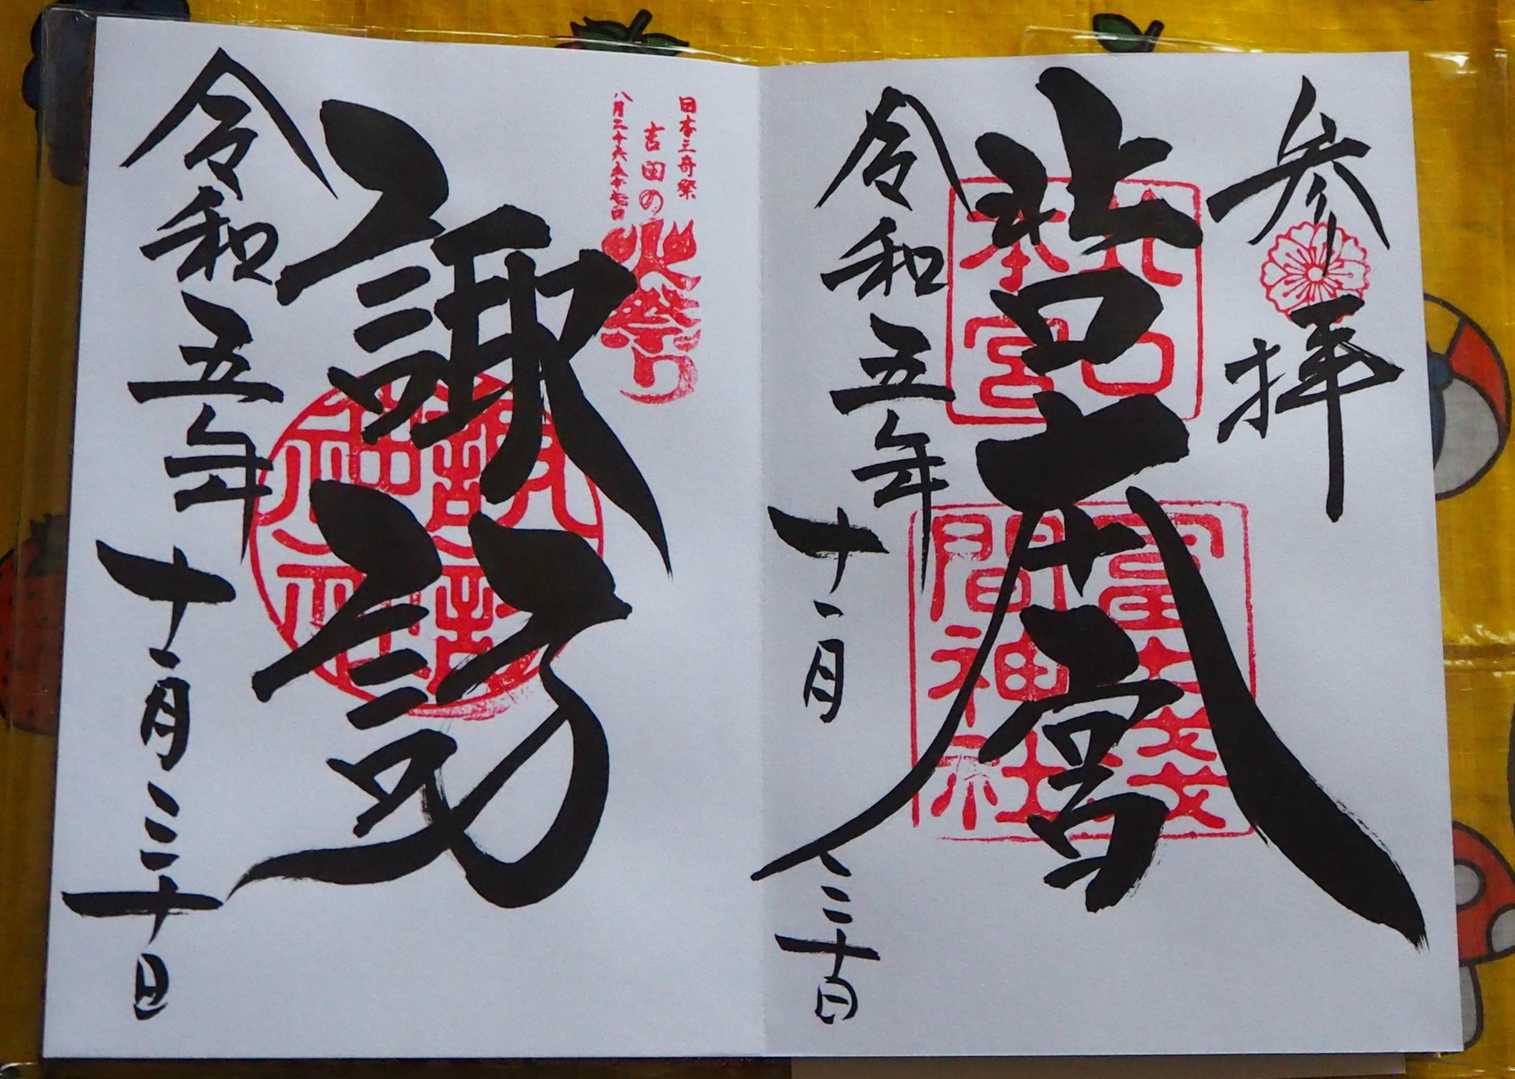 参拝
北口本宮
北口
本宮
冨士浅
間神社
令和五年
十一月三十日
日本三奇祭
吉田の火祭り
八月二十六・二十七日
諏訪
諏訪
神社
令和五年
十一月三十日